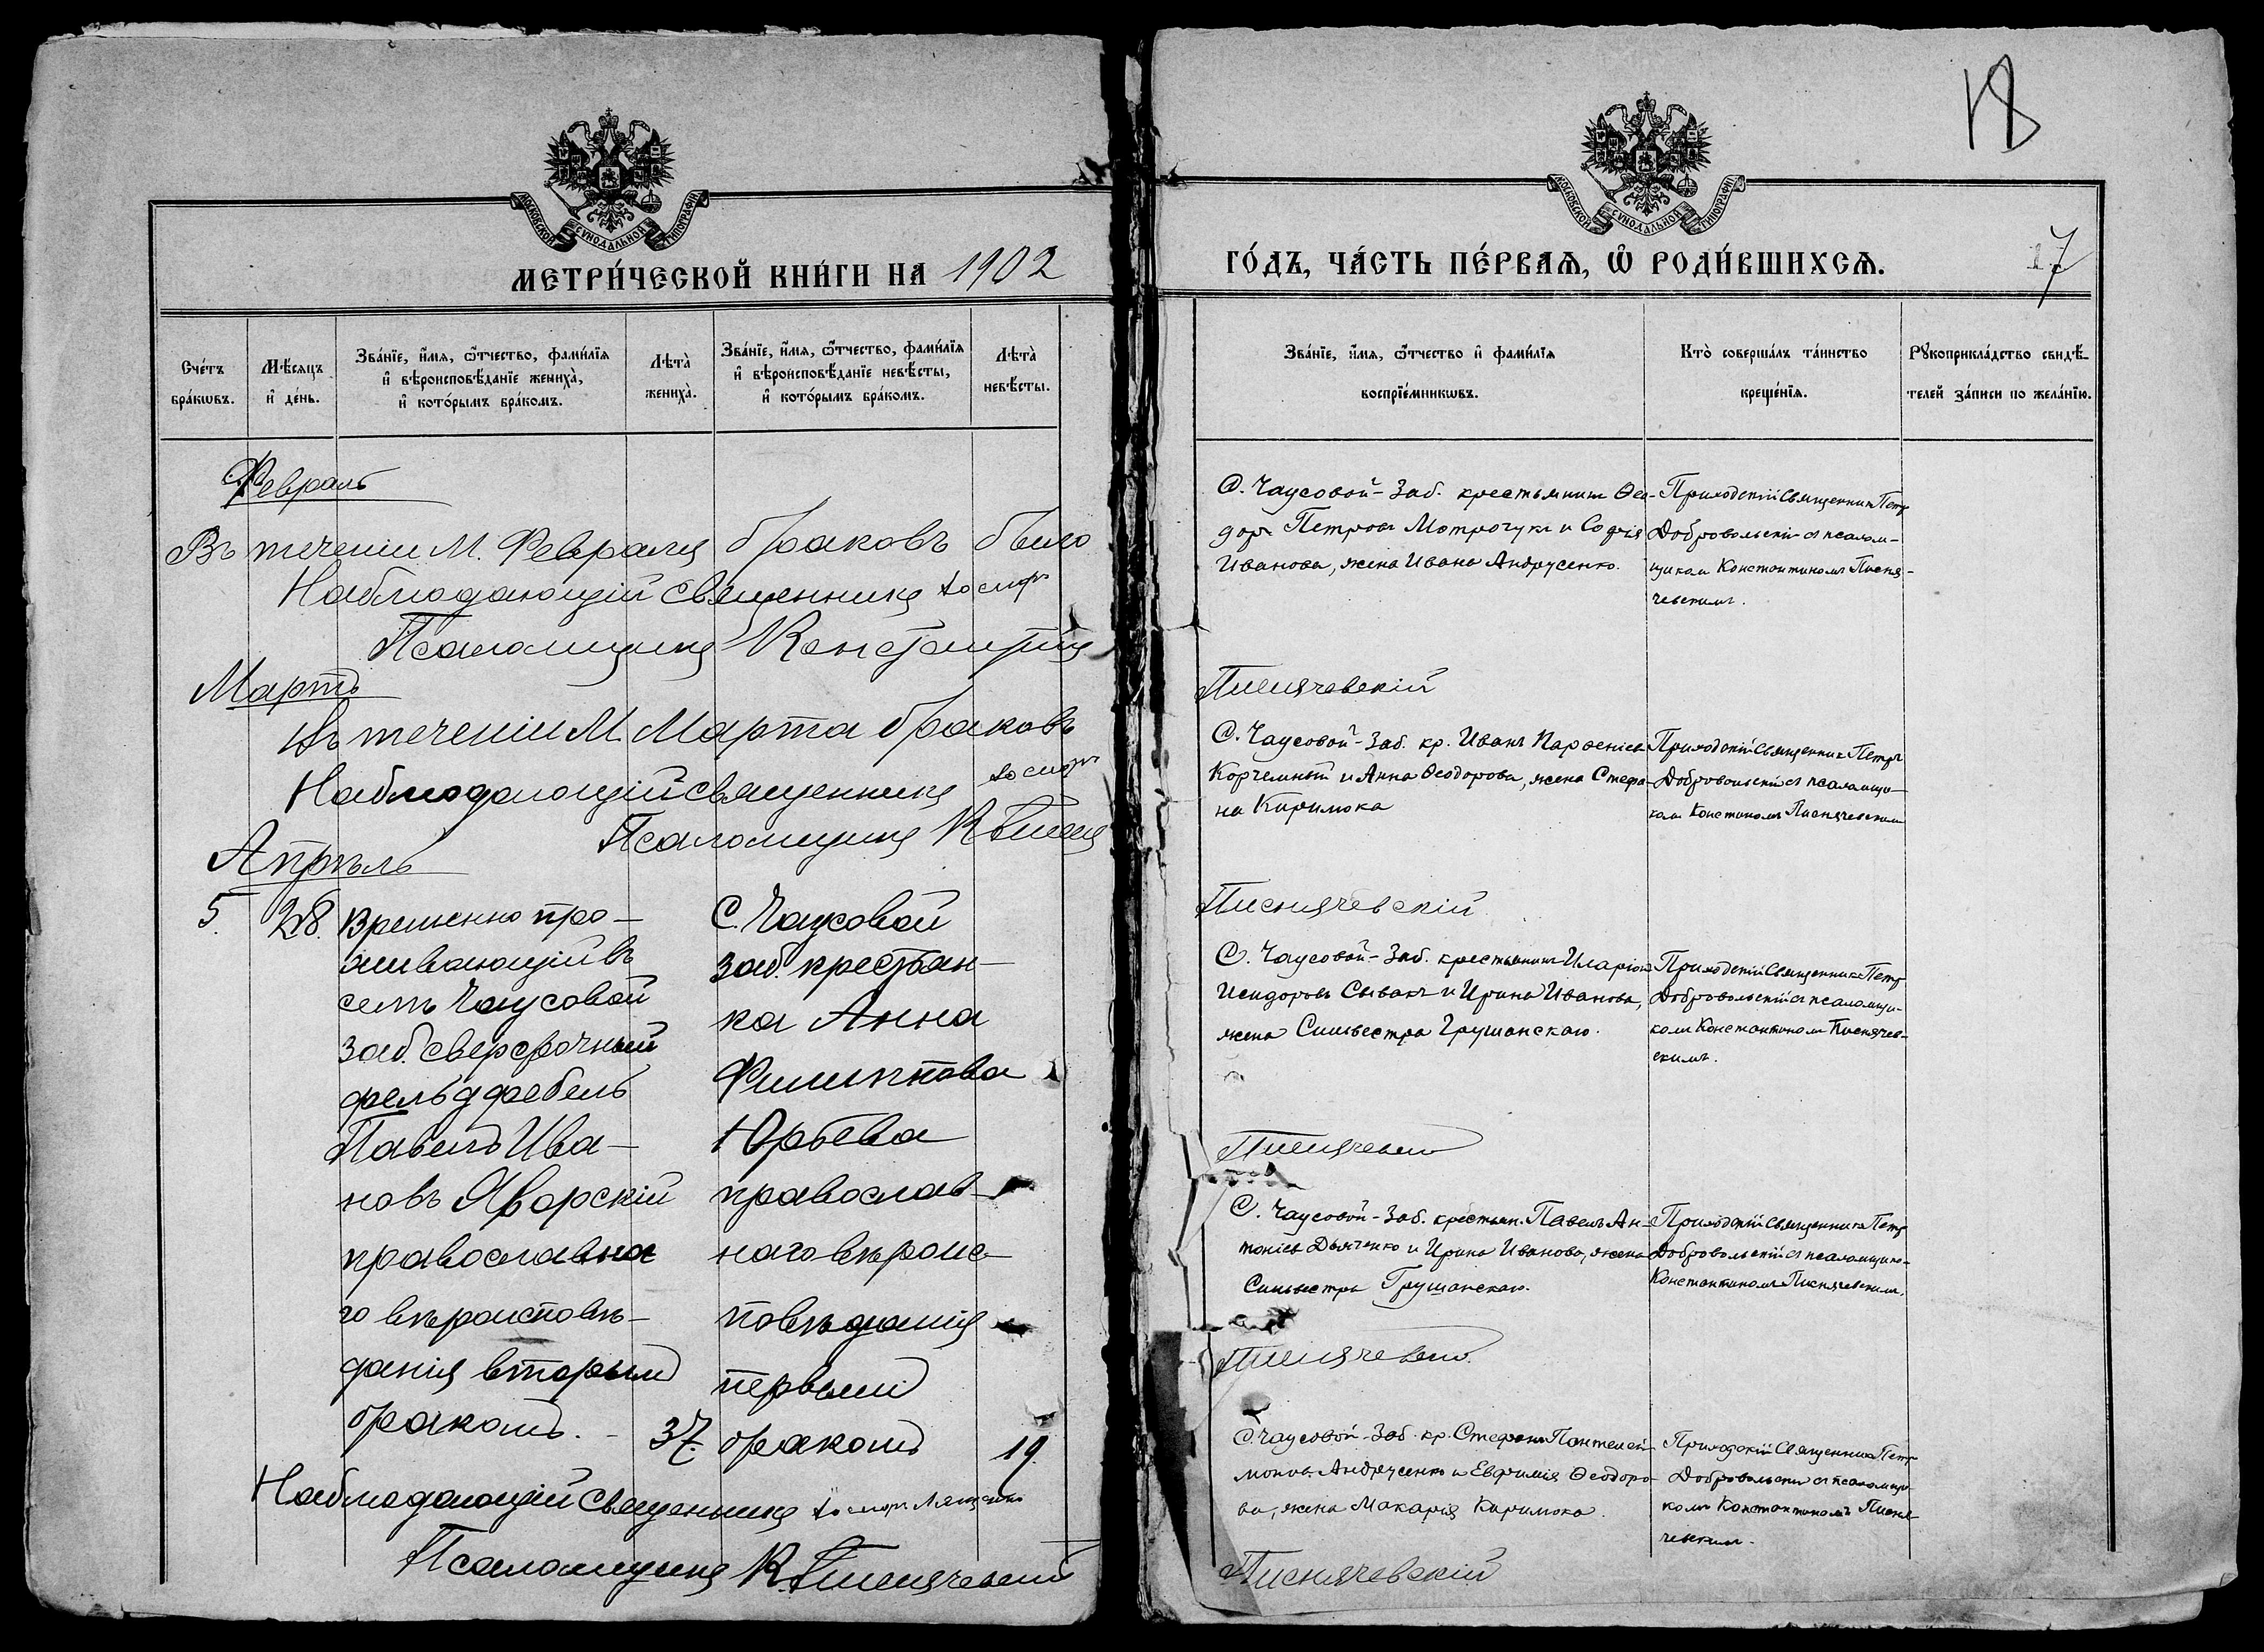 МОСКОВСКОЙ СУНОДАЛЬНОЙ ТИПОГРАФІИ
МЕТРИ́ЧЕСКОЙ КНИ́ГИ НА 1902
Сче́тъ бра́кѡвъ.
Мѣ́сяцъ и҆ де́нь.
Зва́нїе, и҆́мѧ, ѻ҆́тчество, фами́лїѧ
и҆ вѣроисповѣ́данїе жениха̀,
и҆ кото́рымъ бра́комъ.
Лѣта̀ жениха̀.
Зва́нїе, и҆́мѧ, ѻ҆́тчество, фами́лїѧ
и҆ вѣроисповѣ́данїе невѣ́сты,
и҆ кото́рымъ бра́комъ.
Лѣта̀ невѣ́сты.
Февраль
Въ теченіи М. Февраля браковъ было
Наблюдающій священникъ
Псаломщикъ Константинъ
Мартъ
Въ теченіи М. Марта браковъ
Наблюдающій священникъ
Псаломщикъ К
Апрѣль
5. 28. Временно про-
живающій въ
селѣ Чаусовой
заб. сверсрочный
фельдфебель
Павелъ Ива-
новъ Яворскій
православна
го вѣроисповѣ-
данія вторымъ
бракомъ. - 37.
С. Чаусовой
заб. крестьян-
ка Анна
Филиппова
Юрьева
православ-
наго вѣроис-
повѣданія
первымъ
бракомъ 19
Наблюдающій священникъ
Псаломщикъ К. Писнячевскій
18
МОСКОВСКОЙ СУНОДАЛЬНОЙ ТИПОГРАФІИ
ГО́ДЪ, ЧА́СТЬ ПЕ́РВАѦ, Ѡ҆ РОДИ́ВШИХСѦ. 17
Зва́нїе, и҆́мѧ, ѻ҆́тчество и҆ фами́лїѧ
воспрїе́мникѡвъ.
Кто̀ соверша́лъ та́инство
креще́нїѧ.
Рꙋкоприкла́дство свидѣ́-
телей за́писи по жела́нїю.
С. Чаусовой - Заб. крестьянинъ Ѳео-
доръ Петровъ Мотрочукъ и Софія
Иванова, жена Ивана Андрусенко.
Приходскій Священникъ Петръ
Добровольскій съ псалом-
щикомъ Константиномъ Писня-
чевскимъ.
Писнячевскій
С. Чаусовой - Заб. кр. Иванъ Парѳеніевъ
Корчемный и Анна Ѳеодорова, жена Стефа-
на Киримока
Приходскій Священникъ Петръ
Добровольскій съ псаломщи-
комъ Конст Писнячевскимъ
Писнячевскій
С. Чаусовой - Заб. крестьянинъ Иларіонъ
Исидоровъ Сывакъ и Ирина Иванова,
жена Сильвестра Грушанскаго.
Приходскій Священникъ Петръ
Добровольскій съ псаломщи-
комъ Константиномъ Писнячев-
скимъ.
Писнячевскій
С. Чаусовой - Заб. крестьян. Павелъ Ан-
тоніевъ Дьяченко и Ирина Иванова, жена
Сильвестра Грушанскаго.
Приходскій Священникъ Петръ
Добровольскій съ псаломщико-
Константиномъ Писнячевскимъ.
Писнячевскій
С. Чаусовой - Заб. кр. Стефанъ Пантелей-
моновъ Андрусенко и Евфимія Ѳеодоро-
ва, жена Макарія Киримока.
Приходскій Священникъ Петръ
Добровольскій съ псаломщи-
комъ Константиномъ Писня-
чевскимъ.
Писнячевскій